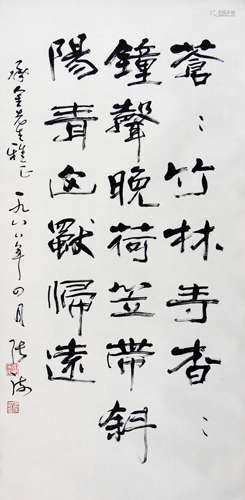 蒼〻竹林寺杳〻
鐘聲晚荷笠帶斜
陽青山獨歸遠
齊金先生雅正 一九六八年四月 張